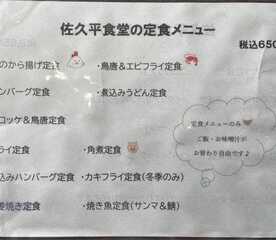 佐久平食堂の定食メニュー
税込650
のから揚げ定食
・鳥唐&エビフライ定食
ハンバーグ定食
・煮込みうどん定食
ロッケ&鳥唐定食
フライ定食
・角煮定食
込みハンバーグ定食
・カキフライ定食(冬季のみ)
姜焼き定食
・焼き魚定食(サンマ&鯖)
定食メニューのみ
ご飯・お味噌汁が
お替わり自由です♪